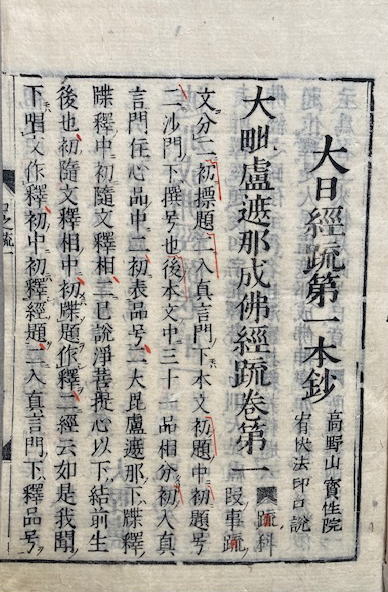 大日経疏第一本鈔
高野山寳性院
宥快法印口説
大毗盧遮那成佛經疏卷第一
疏科
叚事疏
文分二初標題二入真言門下本文初題中初題号
二沙門下撰号也後本文中三十一品相分初入真
言門住心品中二初表品号二大毘盧遮那下牒釋
牒釋中初隨文釋相二已說淨菩提心以下結前生
後也初隨文釋相中初牒題作釋二經云如是我聞
下唱文作釋初中初釋經題二入真言門下釋品号